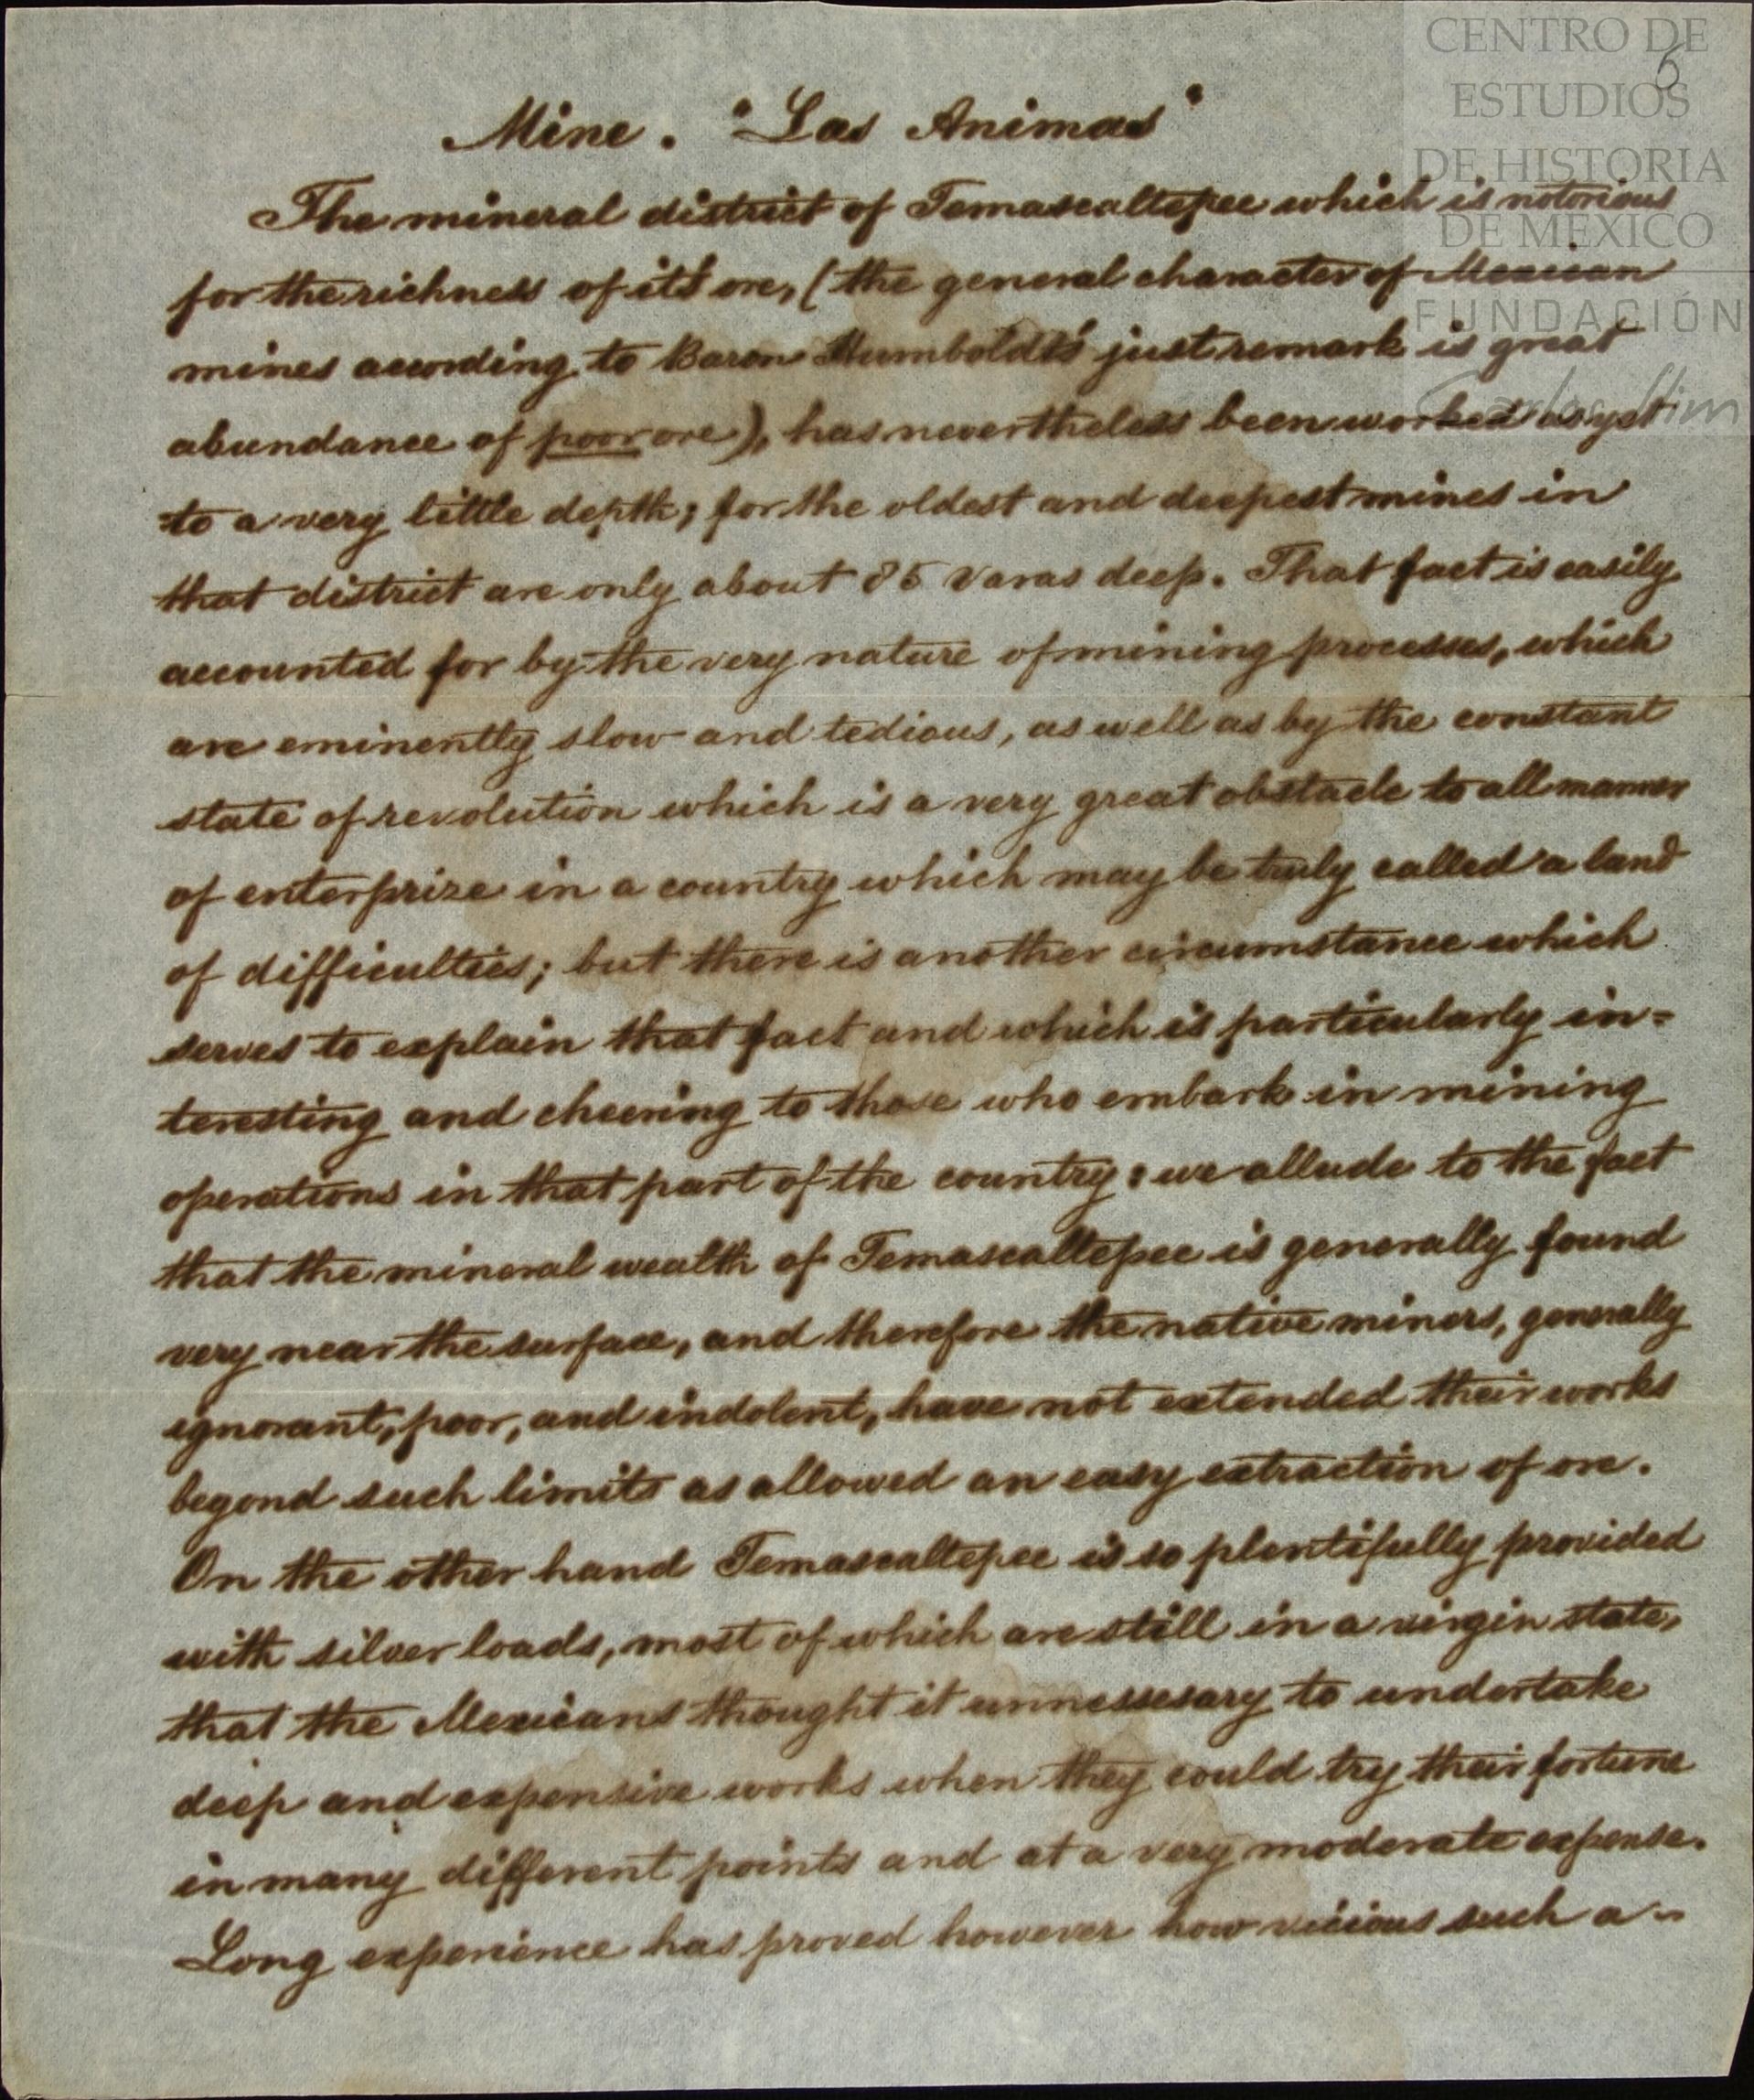 CENTRO DE
ESTUDIOS
DE HISTORIA
DE MEXICO
FUNDACIÓN
Carlos Slim
5
Mine. "Las Animas"
The mineral district of Temascaltepec which is notorious
for the richness of it's ore, (the general character of Mexican
mines according to Baron Humboldt's just remark is great
abundance of poor ore), has nevertheless been worked as yet
to a very little depth; for the oldest and deepest mines in
that district are only about 85 varas deep. That fact is easily
accounted for by the very nature of mining processes, which
are eminently slow and tedious, as well as by the constant
state of revolution which is a very great obstacle to all manner
of enterprize in a country which may be truly called a land
of difficulties; but there is another circumstance which
serves to explain that fact and which is particularly in=
teresting and cheering to those who embark in mining
operations in that part of the country: we allude to the fact
that the mineral wealth of Temascaltepec is generally found
very near the surface, and therefore the native miners, generally
ignorant, poor, and indolent, have not extended their works
beyond such limits as allowed an easy extraction of ore.
On the other hand Temascaltepec is so plentifully provided
with silver loads, most of which are still in a virgin state,
that the Mexicans thought it unnessesary to undertake
deep and expensive works when they could try their fortune
in many different points and at a very moderate expense.
Long experience has proved however how vicious such a